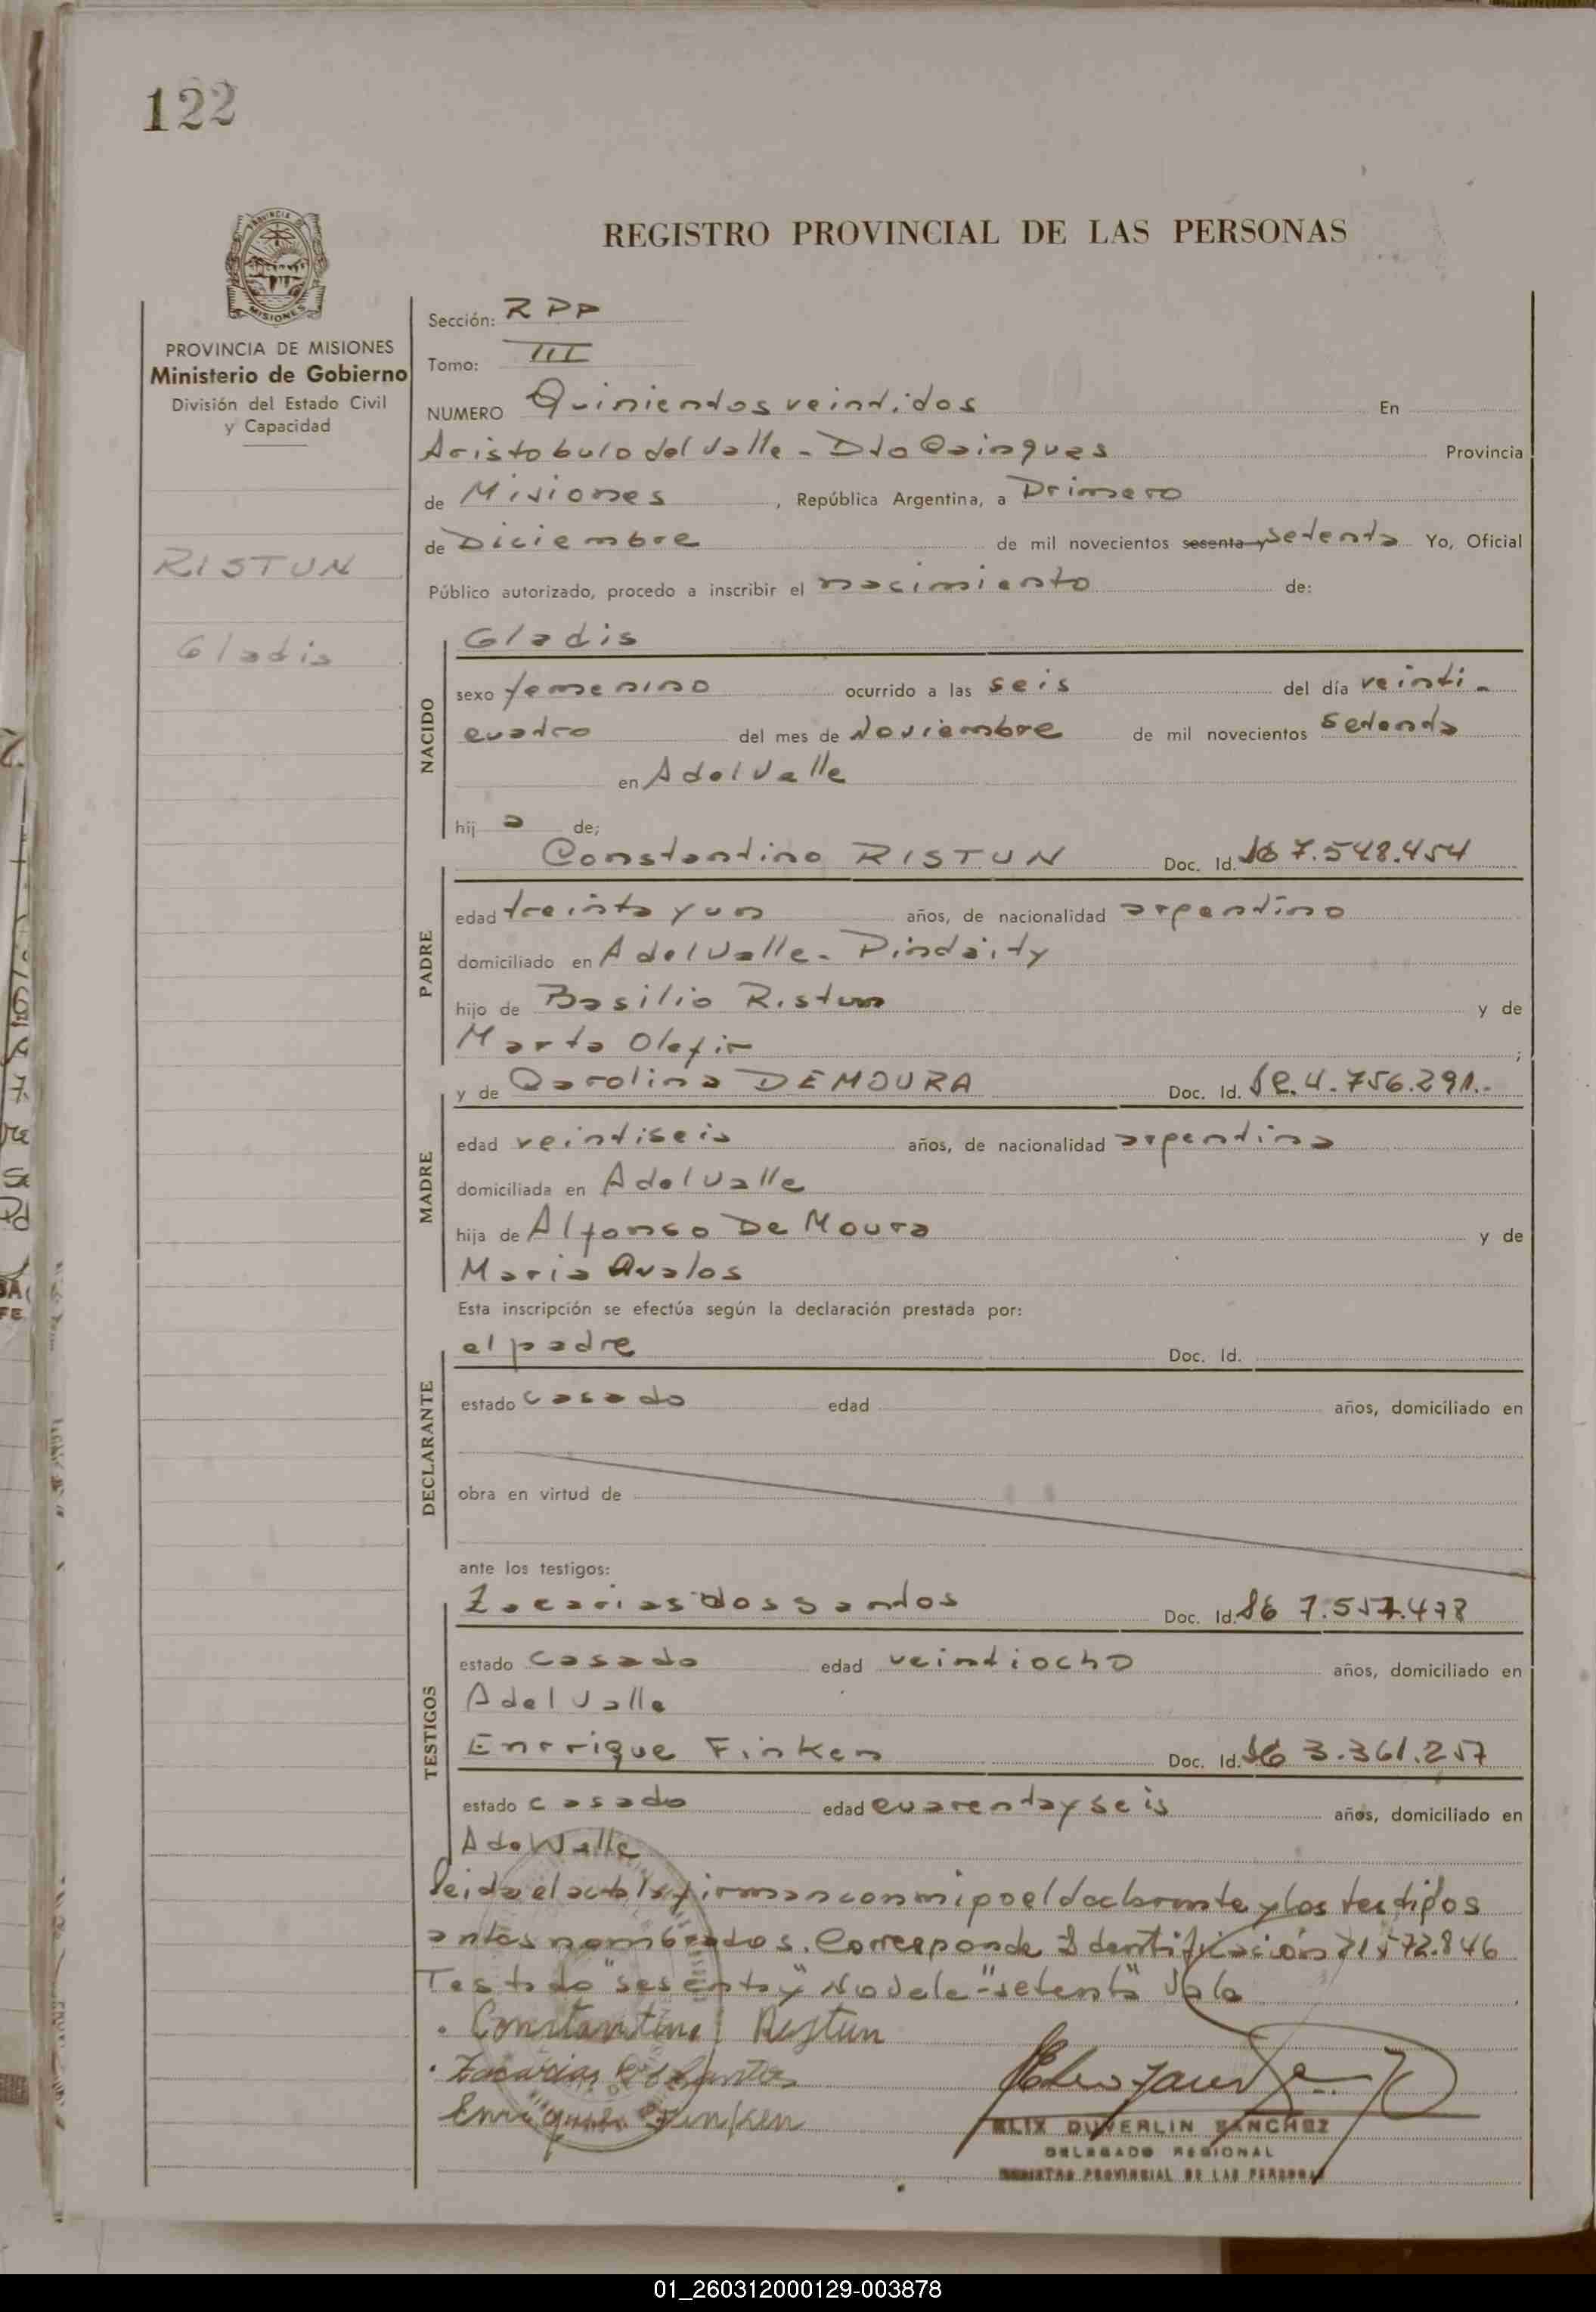 122
REGISTRO PROVINCIAL DE LAS PERSONAS
MISIONES
PROVINCIA DE MISIONES
Ministerio de Gobierno
División del Estado Civil
y Capacidad
RISTUN
Gladis
Sección: RPP
Tomo: III
NUMERO Quinientos veintidos En
Aristobulo del Valle - Dto Cainguas Provincia
de Misiones, República Argentina, a Primero
de Diciembre de mil novecientos sesenta y setenta Yo, Oficial
Público autorizado, procedo a inscribir el nacimiento de:
NACIDO
Gladis
sexo femenino ocurrido a las seis del día veinti-
cuatro del mes de Noviembre de mil novecientos setenta
en A del Valle
hij a de;
PADRE
Constantino RISTUN Doc. Id. 7.548.454
edad treinta y un años, de nacionalidad argentino
domiciliado en A del Valle - Pindaity
hijo de Basilio Ristun y de
Marta Olefir;
MADRE
y de Carolina DEMOURA Doc. Id. 4.756.291.-
edad veintiseis años, de nacionalidad argentina
domiciliada en A del Valle
hija de Alfonso De Moura y de
Maria Avalos
Esta inscripción se efectúa según la declaración prestada por:
DECLARANTE
el padre Doc. Id.
estado casado edad años, domiciliado en
obra en virtud de
ante los testigos:
TESTIGOS
Zacarias dos Santos Doc. Id.
estado casado edad veintiocho años, domiciliado en
A del Valle
Enrrique Finken Doc. Id. 3.361.257
estado casado edad cuarenta y seis años, domiciliado en
A del Valle
leida el acta la firman conmigo el declarante y los testigos
antes nombrados. Corresponde Identificación 21.572.846
Testado "sesenta y" No Vale - "setenta" Vale
Constantino Ristun
Zacarias dos Santos
Enrique Finken
ELIX DUVERLIN SANCHEZ
DELEGADO REGIONAL
REGISTRO PROVINCIAL DE LAS PERSONAS
01_260312000129-003878